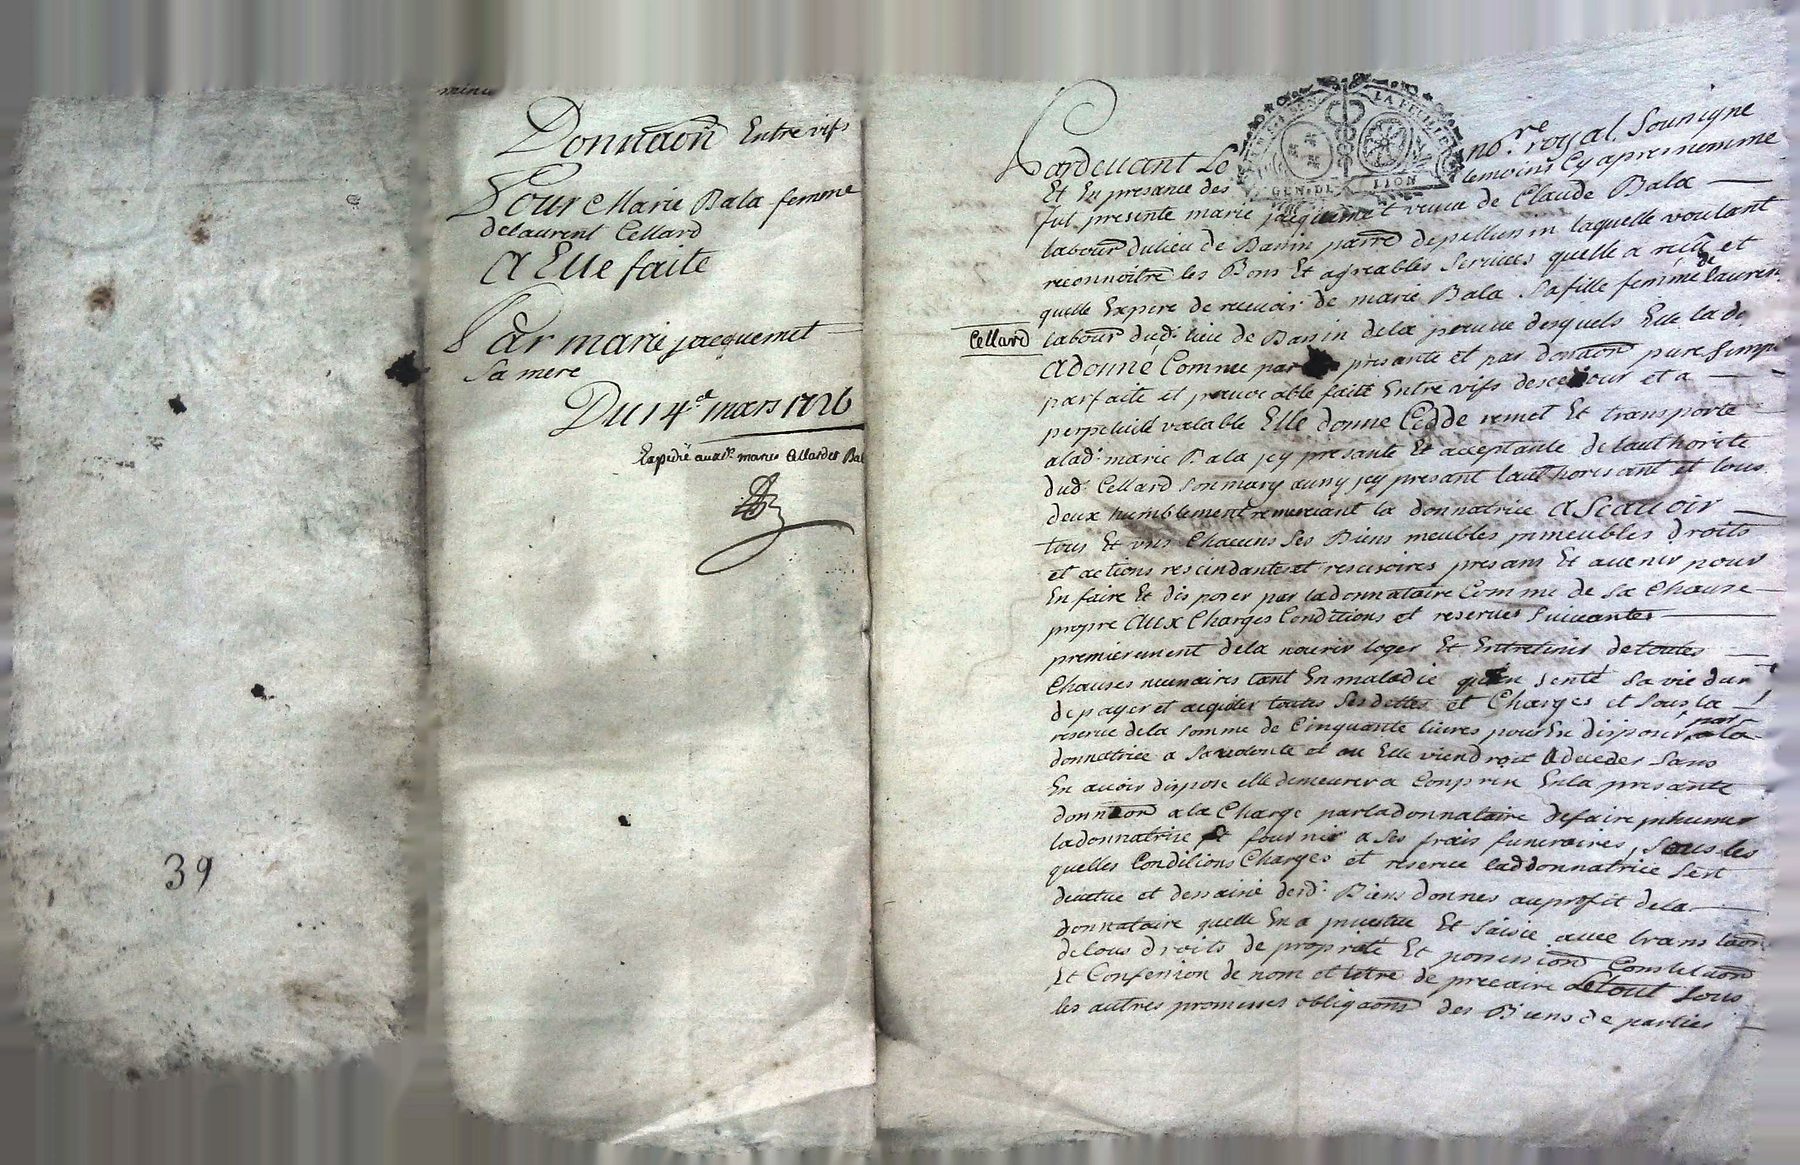 39
minu
Donnaon Entre vifs
Pour Marie Bala femme
de laurent Cellard
A Elle faite
Par marie jacquemet
Sa mere
Du 14e mars 1726
Expedié aux marié Cellard et Bal
Pardevant Le no.re royal Sousigne
Et En presance des temoins Cy apres nomme
fut presente marie jacquemet veuve de Claude Bala
labour du lieu de Banin parre de pellussin laquelle voulant
reconnoitre les Bons Et agreables Services quelle a reçu et
quelle Expere de recevoir de marie Bala Sa fille femme de laurent
Cellard labour dud. lieu de Banin de la preuve desquels Elle la de
A donné Comme par presante et par donaon pure Simp
parfaite et irrevocable faite Entre vifs des ce jour et a
perpetuité valable Elle donne Cedde remet Et transporte
a lad. marie Bala jcy presante Et acceptante de lauthorite
dud. Cellard Son mary aussy jcy present lauthorisant et tous
deux humblement remerciant la donnatrice A Scavoir
tous Et uns Chacuns Ses Biens meubles jmmeubles droits
et actions rescindants et rescisoires presans Et avenir pour
En faire Et disposer par la donnataire Comme de Sa Chause
propre Aux Charges Conditions et reserves Suivantes
premierement de la nourir loger Et Entretenir de toutes
Chauses necessaires tant En maladie quen Senté Sa vie dur
de payer et acquiter toutes Ses dettes et Charges et Sous la
reserve de la Somme de Cinquante livres pour En disposer par la
donnatrice a Sa volonte et ou Elle viendroit A deceder Sans
En avoir dispose elle demeurera Comprise En la presante
donnaon a la Charge par la donnataire de faire jnhumer
la donnatrice Et fournir a Ses frais funeraires, Sous les
quelles Conditions Charges et reserve lad donnatrice Sest
devetue et dessaisie desd. Biens donnes au profit de la
donnataire quelle En a jnvestue Et Saisie avec translaon
de tous droits de propriete Et possession Constituon
Et Confession de nom et titre de precaire Le tout Sous
les autres promesses obligaons des Biens de parties